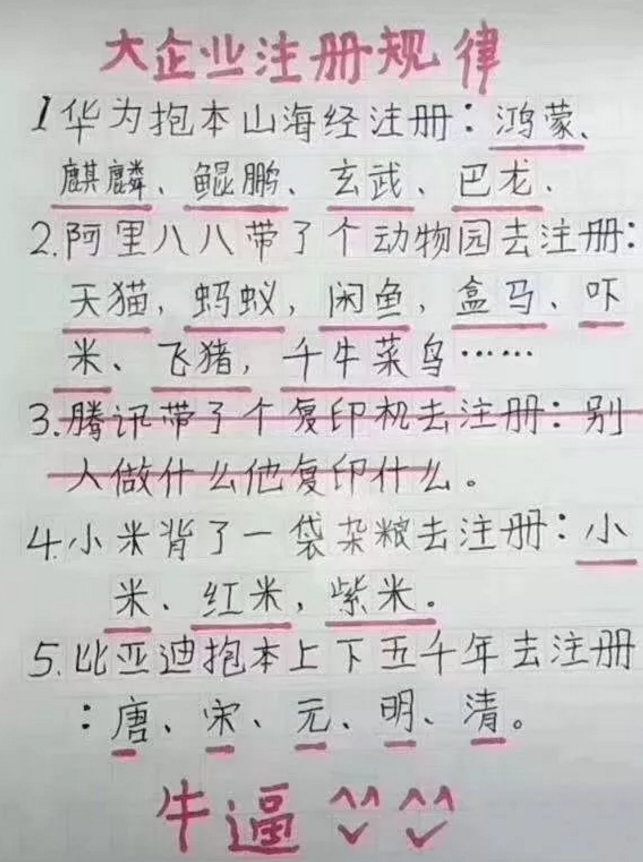 大企业注册规律
1华为抱本山海经注册：鸿蒙、
麒麟、鲲鹏、玄武、巴龙、
2.阿里八八带了个动物园去注册：
天猫，蚂蚁，闲鱼，盒马、吓
米、飞猪，千牛菜鸟……
3.腾讯带了个复印机去注册：别
人做什么他复印什么。
4.小米背了一袋杂粮去注册：小
米、红米，紫米。
5.比亚迪抱本上下五千年去注册
：唐、宋、元、明、清。
牛逼 ^^ ^^